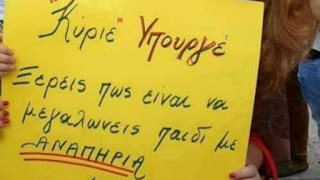 "Κύριε" Υπουργέ
Ξέρεις πως είναι να
μεγαλώνεις παιδί με
ΑΝΑΠΗΡΙΑ